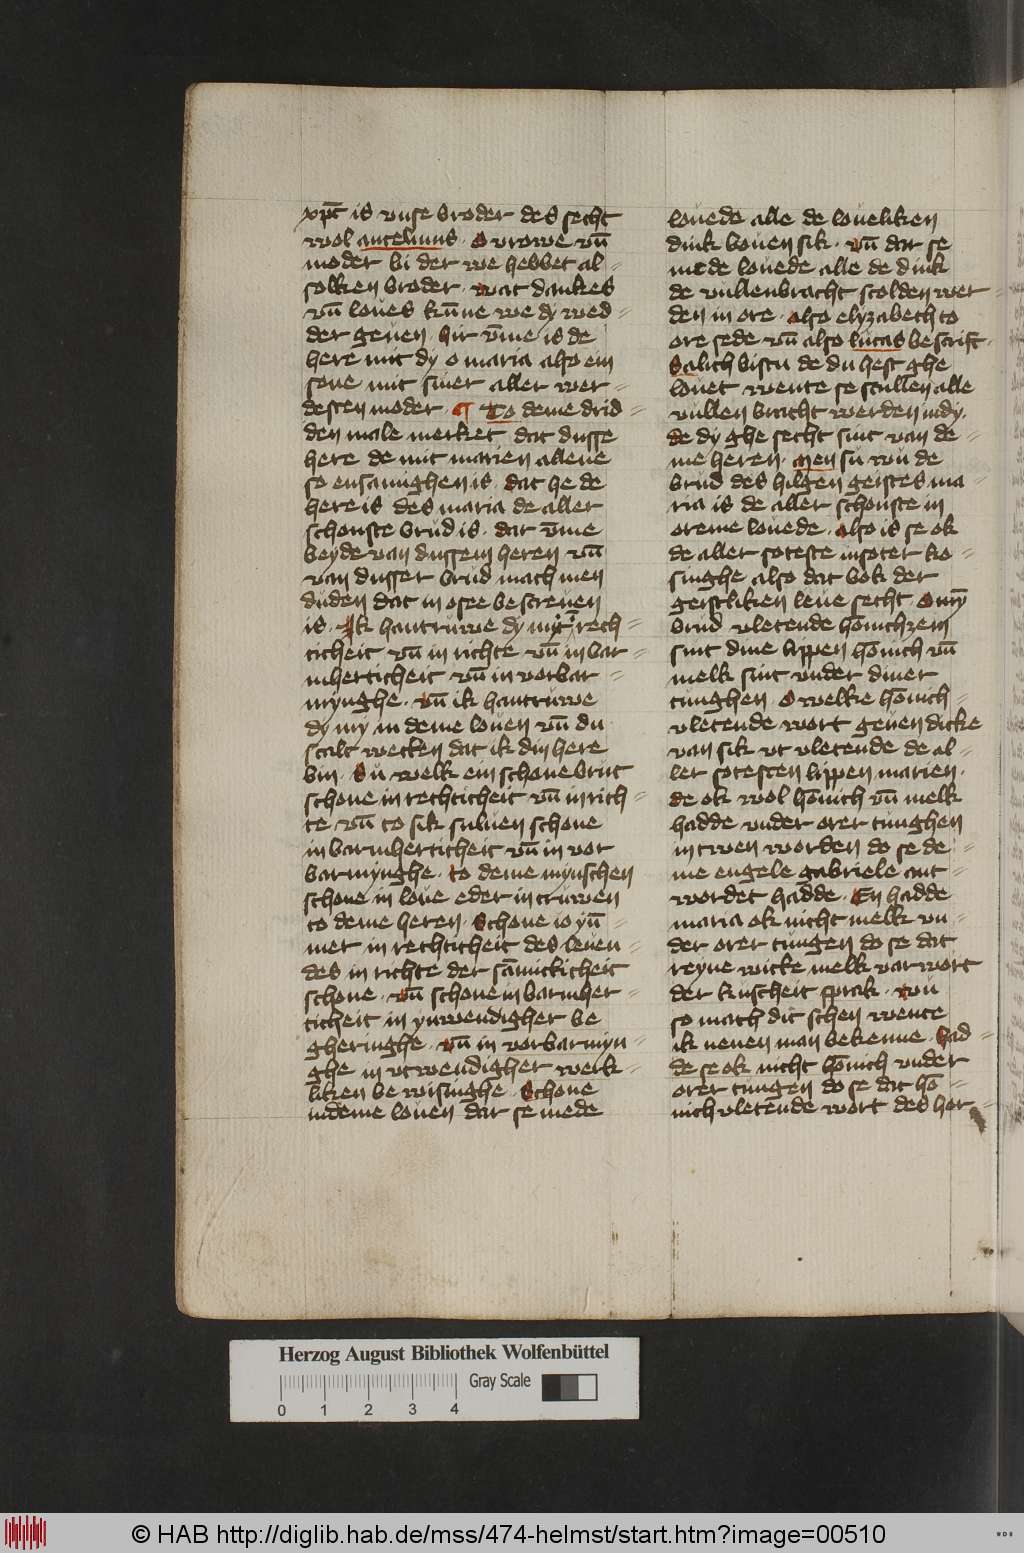 xp̄c is vnse broder des secht
wol ancelmus · O vrowe vn̄
moder bi der we hebbet al=
solken broder · wat dankes
vn̄ loues kūne we dy wed=
der geuen · hir v̄me is de
here mit dy o maria also ein
sone mit siner aller wer=
desten moder · ¶ To deme drid=
den male merket dat dusse
here de mit marien allene
so ensāmighen is · dat he de
here is des maria de aller
schonste brud is · dat v̄me
beyde van dussem heren vn̄
van dusser brud mach men
duden dat in osee bescreuen
is · Ik hantruwe dy my in rech=
ticheit vn̄ in richte vn̄ in bar=
mherticheit vn̄ in vorbar=
mynghe · vn̄ ik hantruwe
dy my in deme louen vn̄ du
scalt wecken dat ik din here
bin · Su welk ein schone brut
schone in rechticheit vn̄ in rich=
te vn̄ to sik suluen schone
in barmherticheit vn̄ in vor
barmynghe · to deme mynschen
schone in loue eder in truwen
to deme heren · Schone io yn̄=
mer in rechticheit des leuen=
des in richte der sāmicticheit
schone · vn̄ schone in barmher=
ticheit in ynwendigher be
gheringhe · vn̄ in vorbarmyn=
ghe in vtwendigher werk=
liken bewisinghe · Schone
in deme louen dat se mede
louede alle de loueliken
dink bouen sik · vn̄ dat se
mede louede alle de dink
de vullenbracht scolden wer=
den in ore · also elyzabech to
ore sede vn̄ also lucas bescrift ·
Salich bistu de du hest ghe
louet wente se scullen alle
vullenbracht werden in dy ·
de dy ghe secht sint van de=
me heren · Men su wu de
brud des hilgen geistes ma=
ria is de aller schonste in
oreme louede · also is se ok
de aller soteste in soter ko=
singhe also dat bok der
geistliken leue secht · O my
brud vletende hōnichzem
sint dine lippen hōnich vn̄
melk sint vnder diner
tunghen · O welke hōnich=
vletende wort geuen dicke
van sik vt vletende de al=
ler sotesten lippen marien ·
de ok wol hōnich vn̄ melk
hadde vnder orer tunghen
in twen worden do se de=
me engele gabriele ant=
wordet hadde · En hadde
maria ok nicht melk vn=
der orer tungen do se dat
reyne witte melk varwort
der kuscheit sprak · wu
so mach dit schen wente
ik nenen man bekenne · had=
de se ok nicht hōnich vnder
orer tungen do se dat hō=
nich vletende wort des hor=
Herzog August Bibliothek Wolfenbüttel
Gray Scale
0 1 2 3 4
© HAB http://diglib.hab.de/mss/474-helmst/start.htm?image=00510